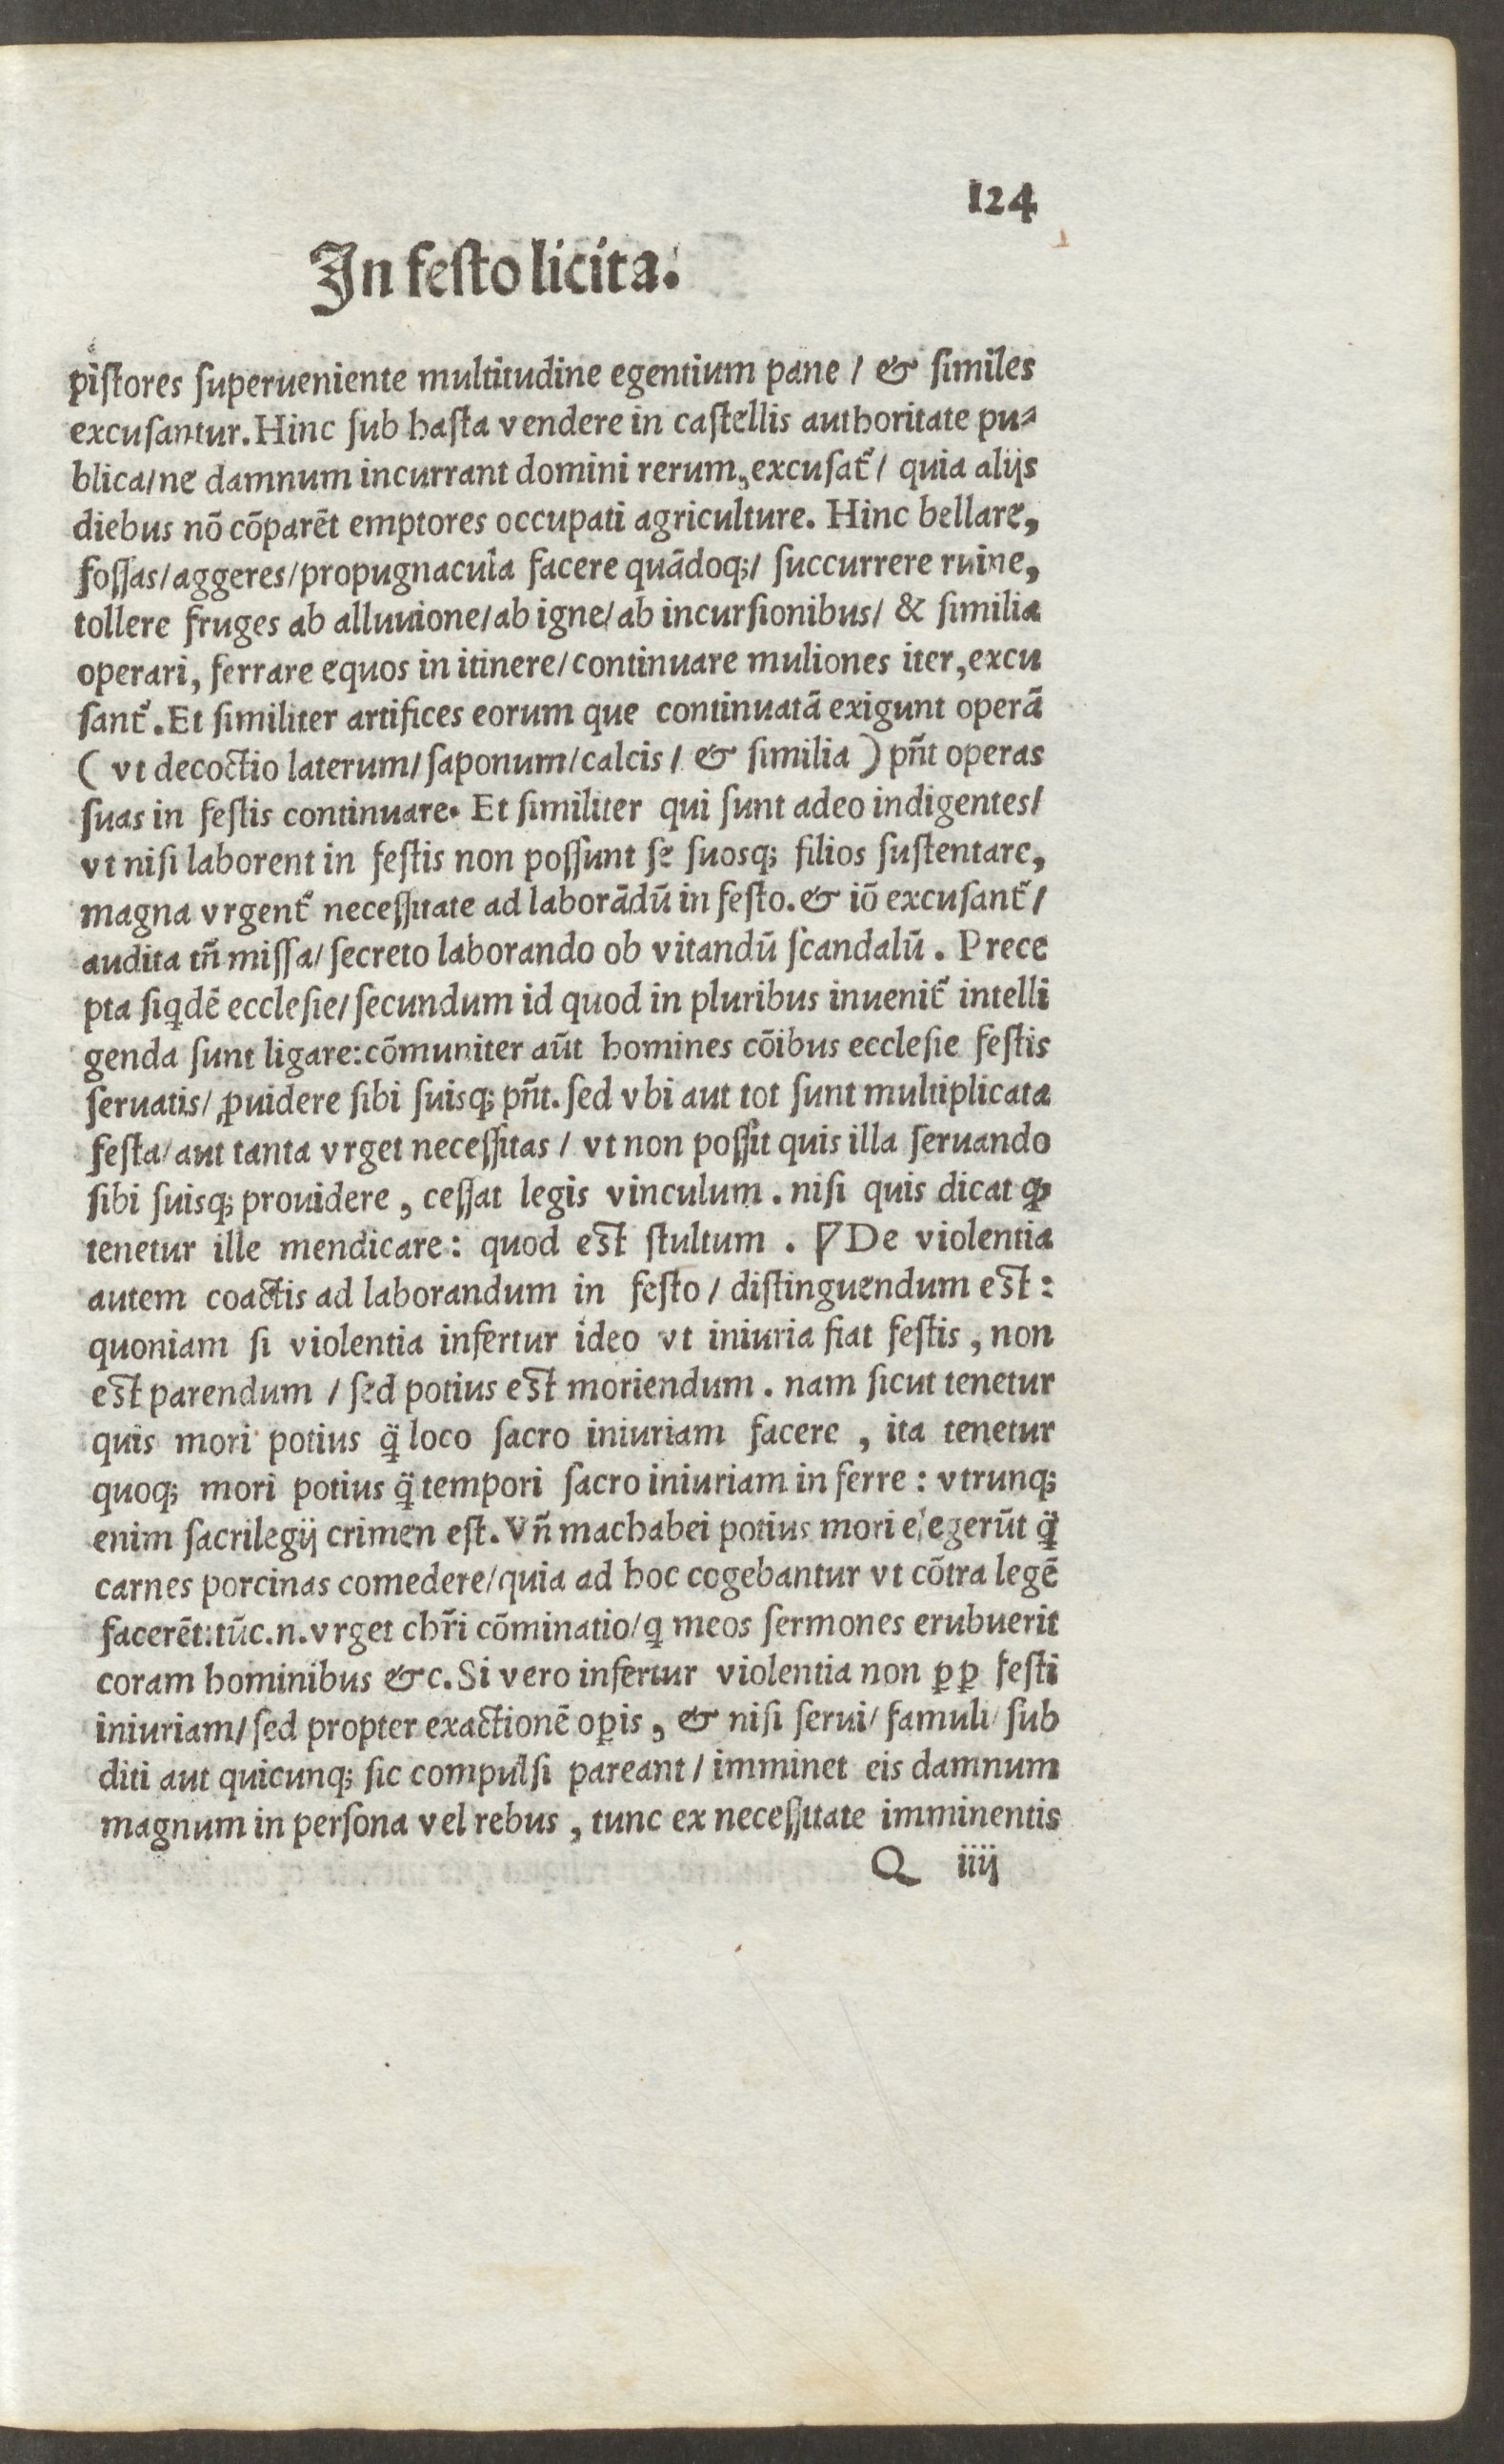 124
In festo licita.
pistores superueniente multitudine egentium pane / & similes
excusantur. Hinc sub hasta vendere in castellis authoritate pu-
blica/ne damnum incurrant domini rerum, excusat᷑/ quia alijs
diebus nõ cõparẽt emptores occupati agriculture. Hinc bellare,
fossas/aggeres/propugnacula facere quãdoq;/ succurrere ruine,
tollere fruges ab alluuione/ab igne/ab incursionibus/ & similia
operari, ferrare equos in itinere/continuare muliones iter, excu
sant᷑. Et similiter artifices eorum que continuatã exigunt operã
( vt decoctio laterum/saponum/calcis/ & similia ) pñt operas
suas in festis continuare. Et similiter qui sunt adeo indigentes/
vt nisi laborent in festis non possunt se suosq; filios sustentare,
magna vrgent᷑ necessitate ad laborãdũ in festo. & iõ excusant᷑/
audita tñ missa/secreto laborando ob vitandũ scandalũ. Prece
pta siqdẽ ecclesie/secundum id quod in pluribus inuenit᷑ intelli
genda sunt ligare: cõmuniter aũt homines cõibus ecclesie festis
seruatis/ ꝓuidere sibi suisq; pñt. sed vbi aut tot sunt multiplicata
festa/aut tanta vrget necessitas/ vt non possit quis illa seruando
sibi suisq; prouidere, cessat legis vinculum. nisi quis dicat ꝙ
tenetur ille mendicare: quod est stultum. ∇De violentia
autem coactis ad laborandum in festo/ distinguendum est:
quoniam si violentia infertur ideo vt iniuria fiat festis, non
est parendum / sed potius est moriendum. nam sicut tenetur
quis mori potius q̃ loco sacro iniuriam facere, ita tenetur
quoq; mori potius q̃ tempori sacro iniuriam in ferre: vtrunq;
enim sacrilegij crimen est. Vñ machabei potius mori elegerũt q̃
carnes porcinas comedere/quia ad hoc cogebantur vt cõtra legẽ
facerẽt: tũc.n.vrget chr̃i cõminatio/q meos sermones erubuerit
coram hominibus &c. Si vero infertur violentia non ꝑꝑ festi
iniuriam/sed propter exactionẽ oꝑis, & nisi serui/famuli/sub
diti aut quicunq; sic compulsi pareant/ imminet eis damnum
magnum in persona vel rebus, tunc ex necessitate imminentis
Q iiij